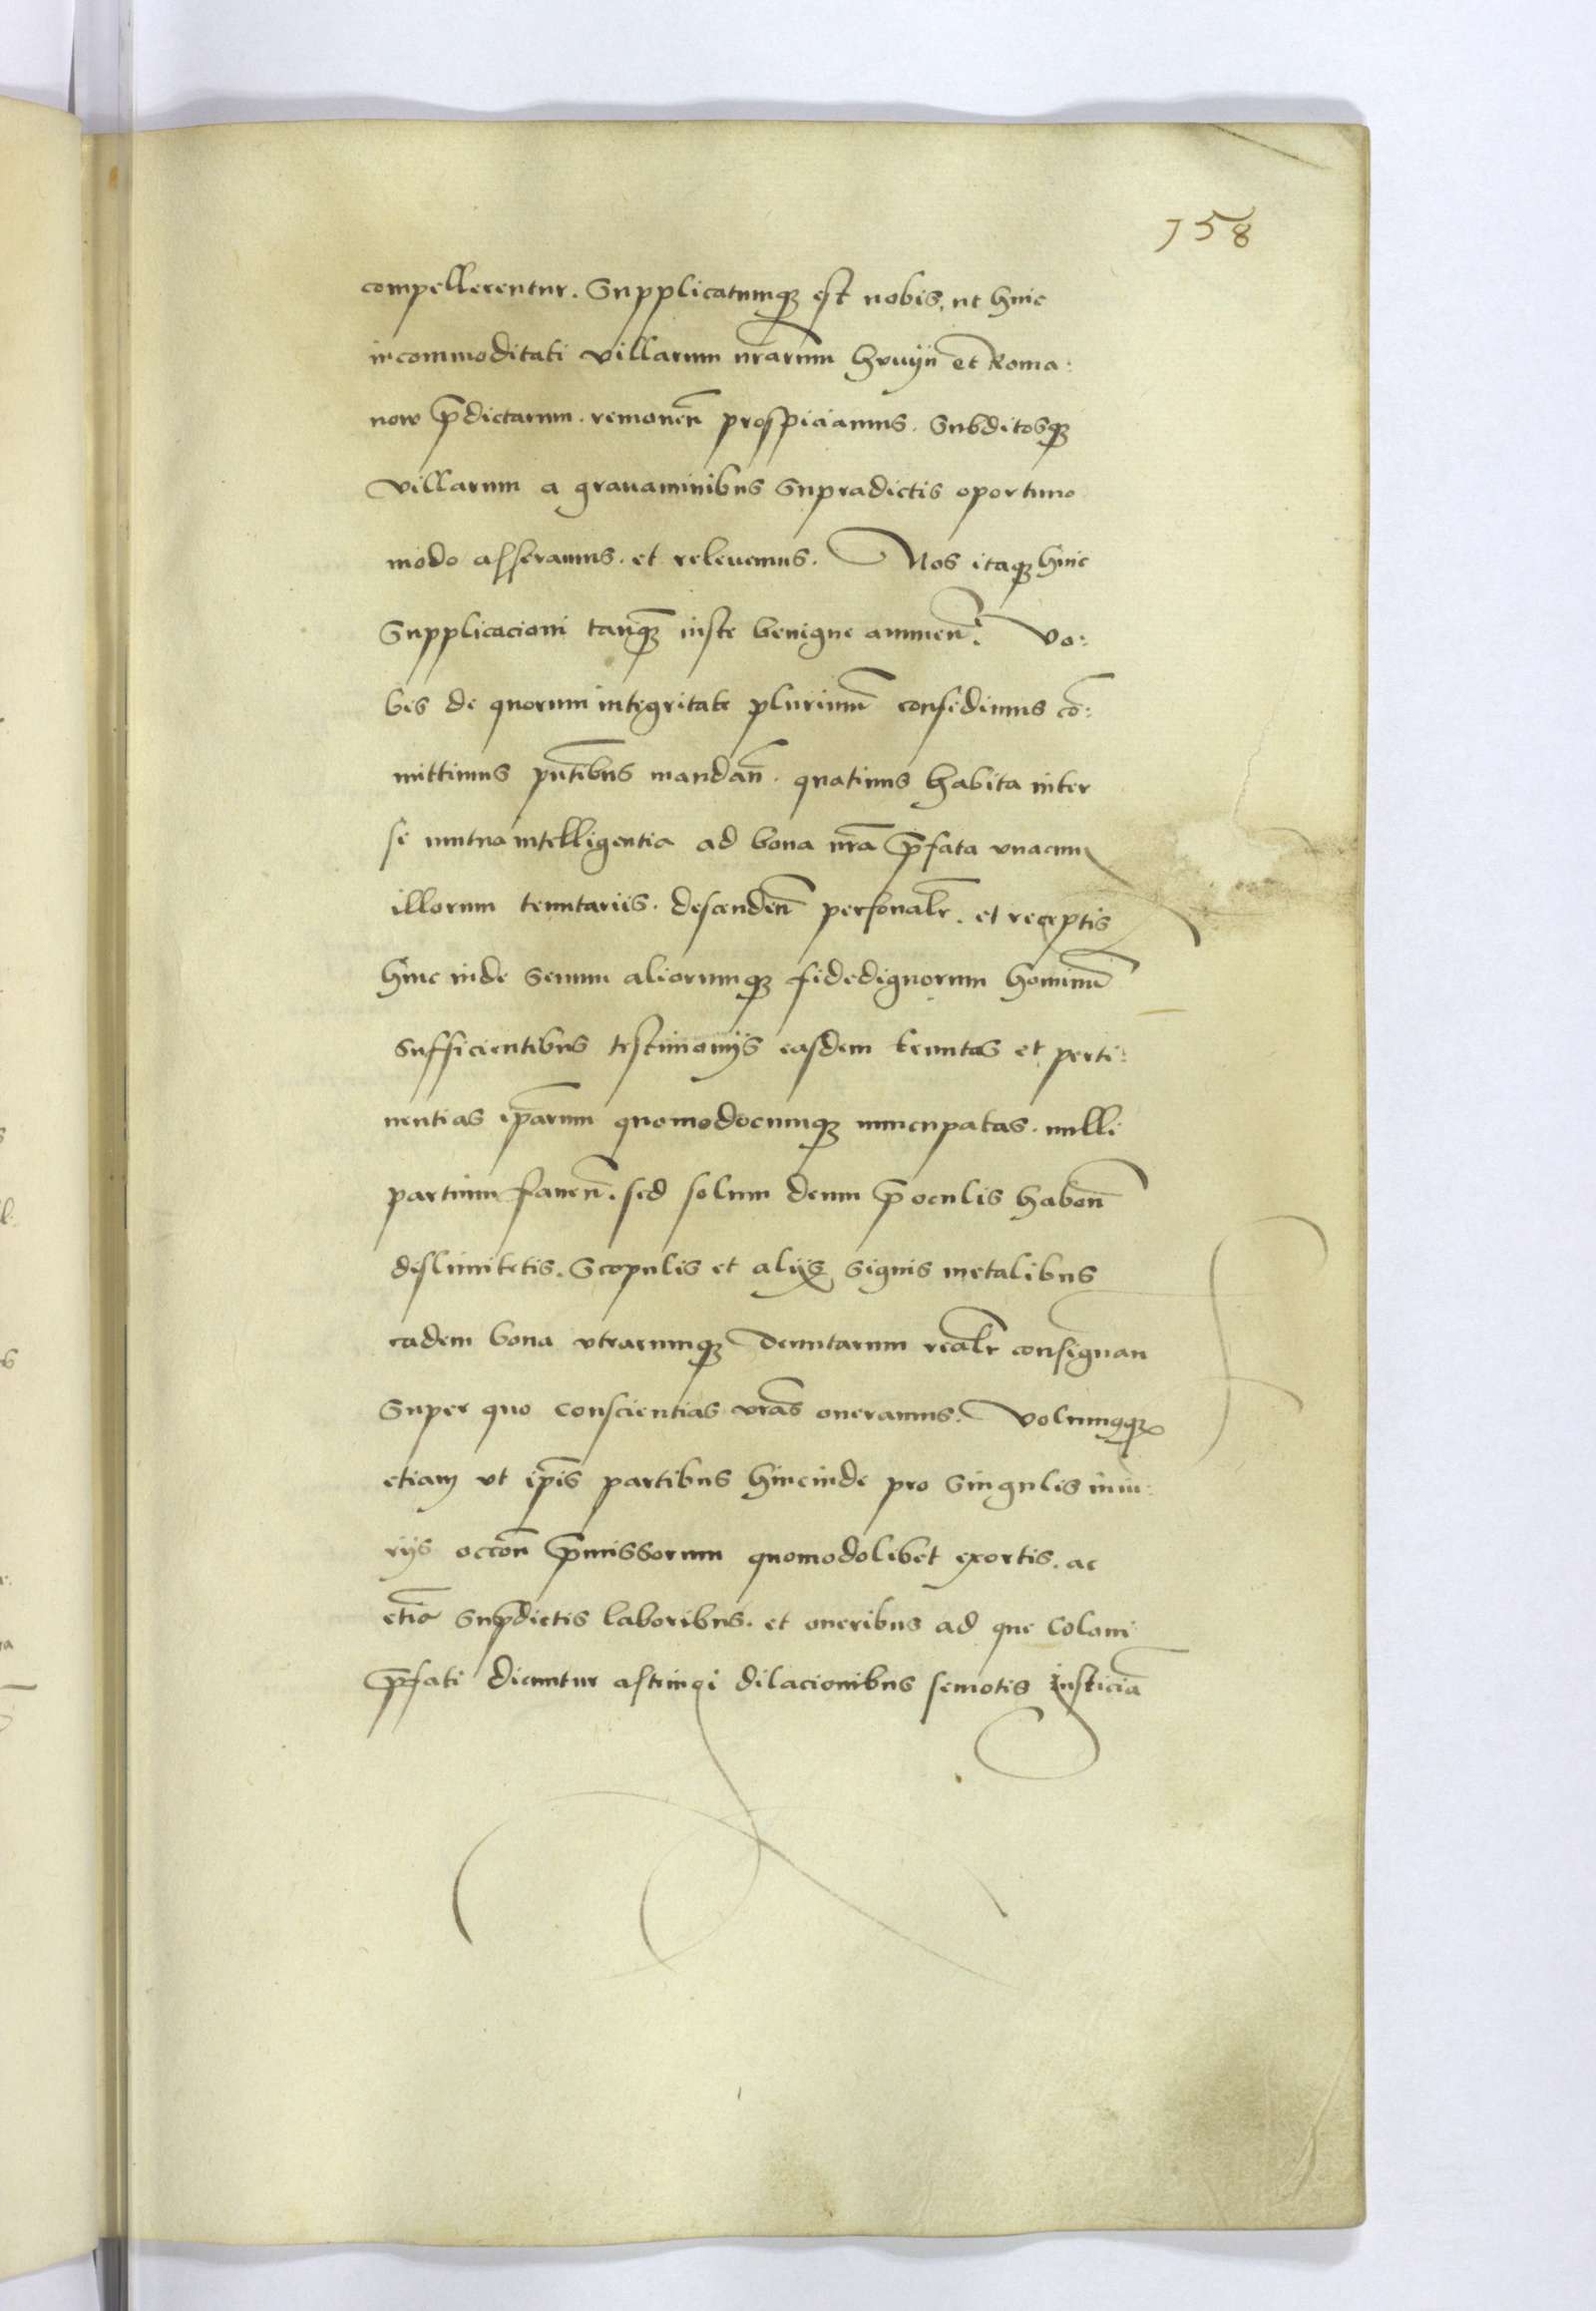 158
compellerentur. Supplicatumq; est nobis, ut huic
incommoditati villarum nrārum hruyn et Roma:
now p̄dictarum. remouen̄ prospiciamus. Subditosq;
villarum a grauaminibus Supradictis oportuno
modo asseramus. et releuemus. Nos itaq; huic
Supplicacioni tanq̄; iuste benigne annuen̄. Vo:
bis de quorum integritate plurimū confidimus cō:
mittimus pn̄tibus mandan̄. quatinus habita inter
se mutua intelligentia ad bona nrā p̄fata vnacum
illorum tenutariis. descenden̄ personalr̄. et receptis
hinc inde Senum aliorumq; fidedignorum hominū
Sufficientibus testimonijs easdem tenutas et perti:
nentias ip̄arum quomodocumq; nuncupatas. nulli
partium fauen̄. sed solum deum p̄ oculis haben̄
deslimitetis. Scopulis et alijs signis metalibus
eadem bona vtrarumq; tenutarum realr̄ consignan
Super quo conscientias vrās oneramus. Volumusq;
etiam vt ip̄is partibus hincinde pro Singulis iniu:
rijs occōn p̄missorum quomodolibet exortis. ac
etiā Sup̄dictis laboribus. et oneribus ad que Coloni
p̄fati dicuntur astringi dilacionibus semotis iusticiā